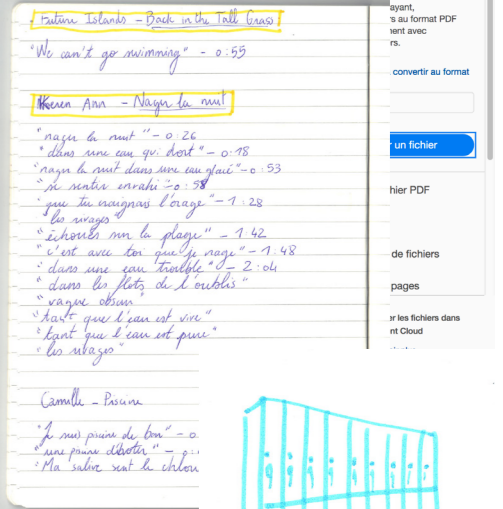 Future Islands - Back in the Tall Grass
"We can't go swimming" - 0:55
Keren Ann - Nager la nuit
"nager la nuit" - 0:26
"dans une eau qui dort" - 0:18
"nager la nuit dans une eau glacé" - 0:53
"se sentir envahi" - 0:58
"que tu craignais l'orage" - 1:28
"les rivages"
"échoués sur la plage" - 1:42
"c'est avec toi que je nage" - 1:48
"dans une eau trouble" - 2:04
"dans les flots de l'oublis"
"vague obscur"
"tant que l'eau est vive"
"tant que l'eau est pure"
"les rivages"
Camille - Piscine
"Je suis piscine de bon" - 0
"une panne" - 0:
"Ma salive sent le chlor
ayant,
s au format PDF
ment avec
rs.
convertir au format
r un fichier
hier PDF
de fichiers
pages
er les fichiers dans
nt Cloud